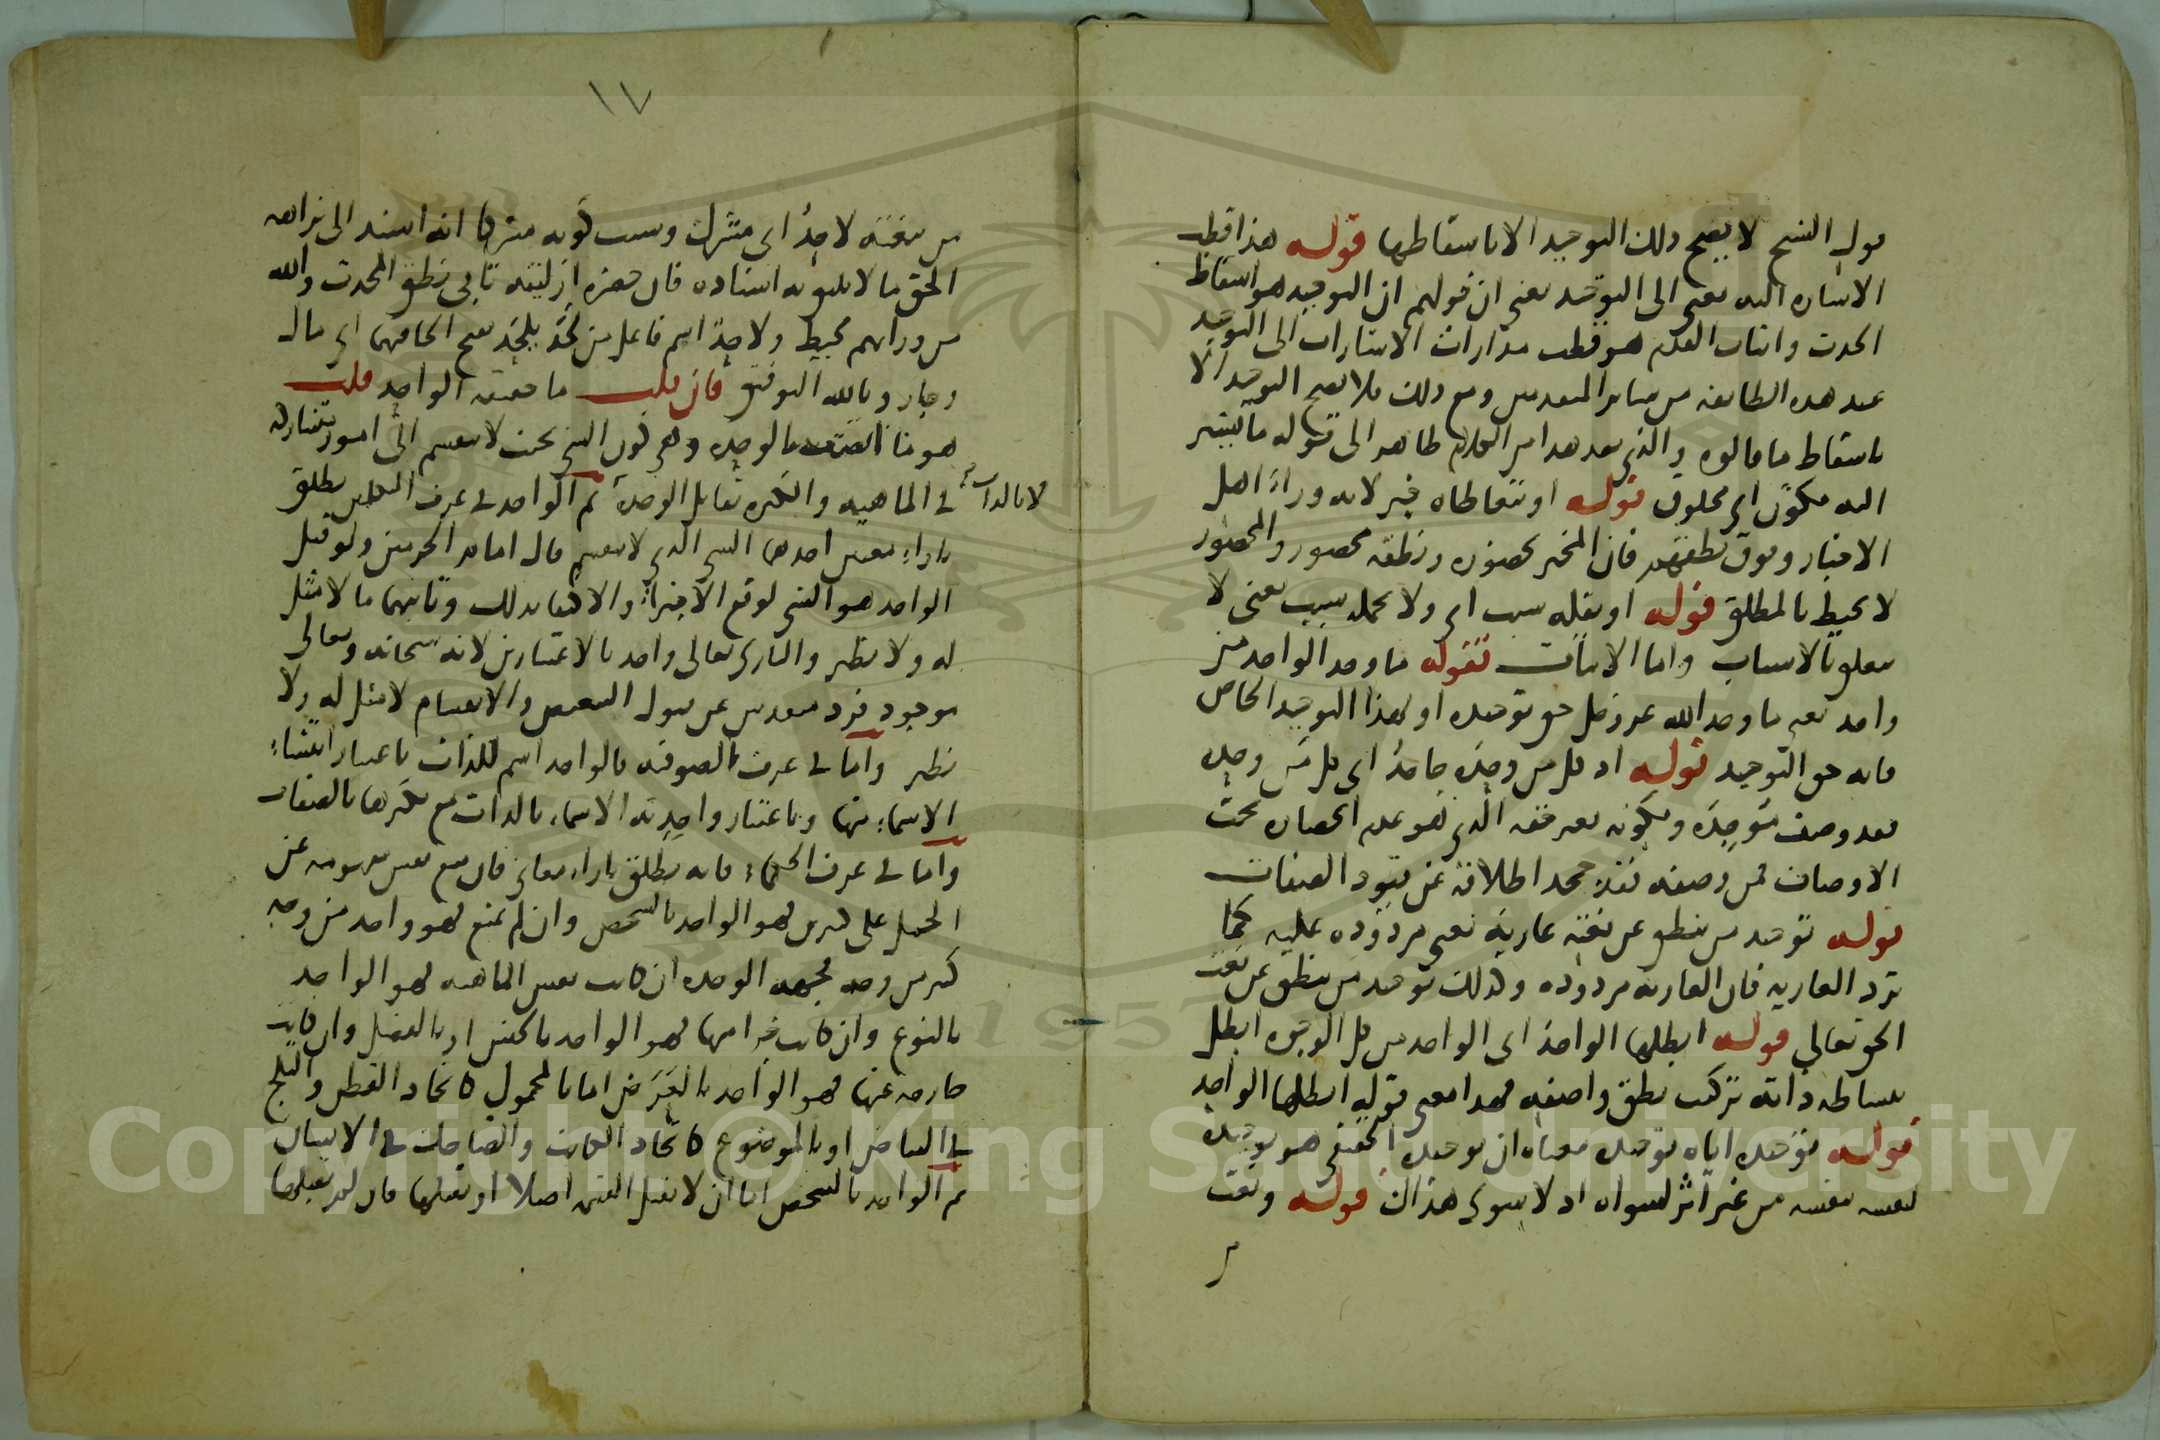 قول الشيخ لا يصح ذلك التوحيد الا باسقاطها قوله هذا قطب
الاشارة اليه يعني الى التوحيد يعني ان قولهم ان التوحيد هو اسقاط
الحدث واثبات القدم هو قطب مدارات الاشارات الى التوحيد
عند هذه الطائفة من سائر المتقدمين ومع ذلك فلا يصح التوحيد الا
باسقاط ما قالوه والذي بعد هذا من الكلام ظاهر الى قوله ما يشير
اليه مكوّن اي مخلوق قوله او يتعاطاه خبر لانه وراء اهل
الاخبار وفوق نطقهم فان المخبر محصور ونطقه محصور والمحصور
لا يحيط بالمطلق قوله او يقله سبب اي ولا يحمله سبب يعني لا
يتعلق بالاسباب واما الابيات فقوله ما وحد الواحد من
واحد يعني ما وحد الله عز وجل حق توحيده او لهذا التوحيد الخاص
فانه حق التوحيد قوله اذ كل من وحده جاحد اي كل من وحده
فقد وصف موحده ويكون معرفته الذي هو عدم انحصاره تحت
الاوصاف فمن وصفه فقد جحد اطلاقه عن قيود الصفات
قوله توحيد من ينطق عن نعته عارية يعني مردوده عليه كما
ترد العارية فان العارية مردوده وكذلك توحيد من ينطق عن نعت
الحق تعالى قوله ابطلها الواحد اي الواحد من كل الوجوه ابطل
بساطة ذاته تركب نطق واصفه فهذا معنى قوله ابطلها الواحد
قوله توحيده اياه توحيده معناه ان توحيده الحقيقي هو توحيده
لنفسه بنفسه من غير اثر لسواه اذ لا سوى هذاك قوله ونعت
١٧
من ينعته لاحد اي مشرك وسبب كونه مشركا انه اسند الى نزاهة
الحق ما لا يليق به اسناده فان حضرة ازليته تابى نطق المحدث والله
من ورائهم محيط ولاحد اسم فاعل من لحد يلحد بفتح الحا فيهما اي مال
وجار وبالله التوفيق فان قلت ما حقيقة الواحد قلت
هو ما اتصف بالوحدة وهي كون الشي بحيث لا ينقسم الى امور متشاركة
في الماهيه والكثرة تقابل الوحدة ثم الواحد في عرف المتكلمين يطلق
بازاء معنيين احدهما الشي الذي لا ينقسم قال امام الحرمين ولو قيل
الواحد هو الشي لوقع الاجتزاء والاكتفا بذلك وثانيهما ما لا مثل
له ولا نظير والباري تعالى واحد بالاعتبارين لانه سبحانه وتعالى
موجود فرد متقدس عن قبول التبعيض والانقسام لا مثل له ولا
نظير واما في عرف الصوفيه فالواحد اسم للذات باعتبار انتشاء
الاسماء منها وباعتبار واحدية الاسماء بالذات مع تكثرها بالصفات
واما في عرف الحكماء فانه يطلق بازاء معاني فان منع نفس مفهومه عن
الحمل على كثيرين فهو الواحد بالشخص وان لم يمنع فهو واحد من وجه
كثير من وجه فجهة الوحدة ان كانت نفس الماهيه فهو الواحد
بالنوع وان كانت جزا منها فهو الواحد بالجنس او بالفصل وان كانت
خارجة عنها فهو الواحد بالعرض اما بالمحمول كاتحاد القطن والثلج
في البياض او بالموضوع كاتحاد الكاتب والضاحك في الانسان
ثم الواحد بالشخص اما ان لا يقبل القسمه اصلا او يقبلها فان لم يقبلها